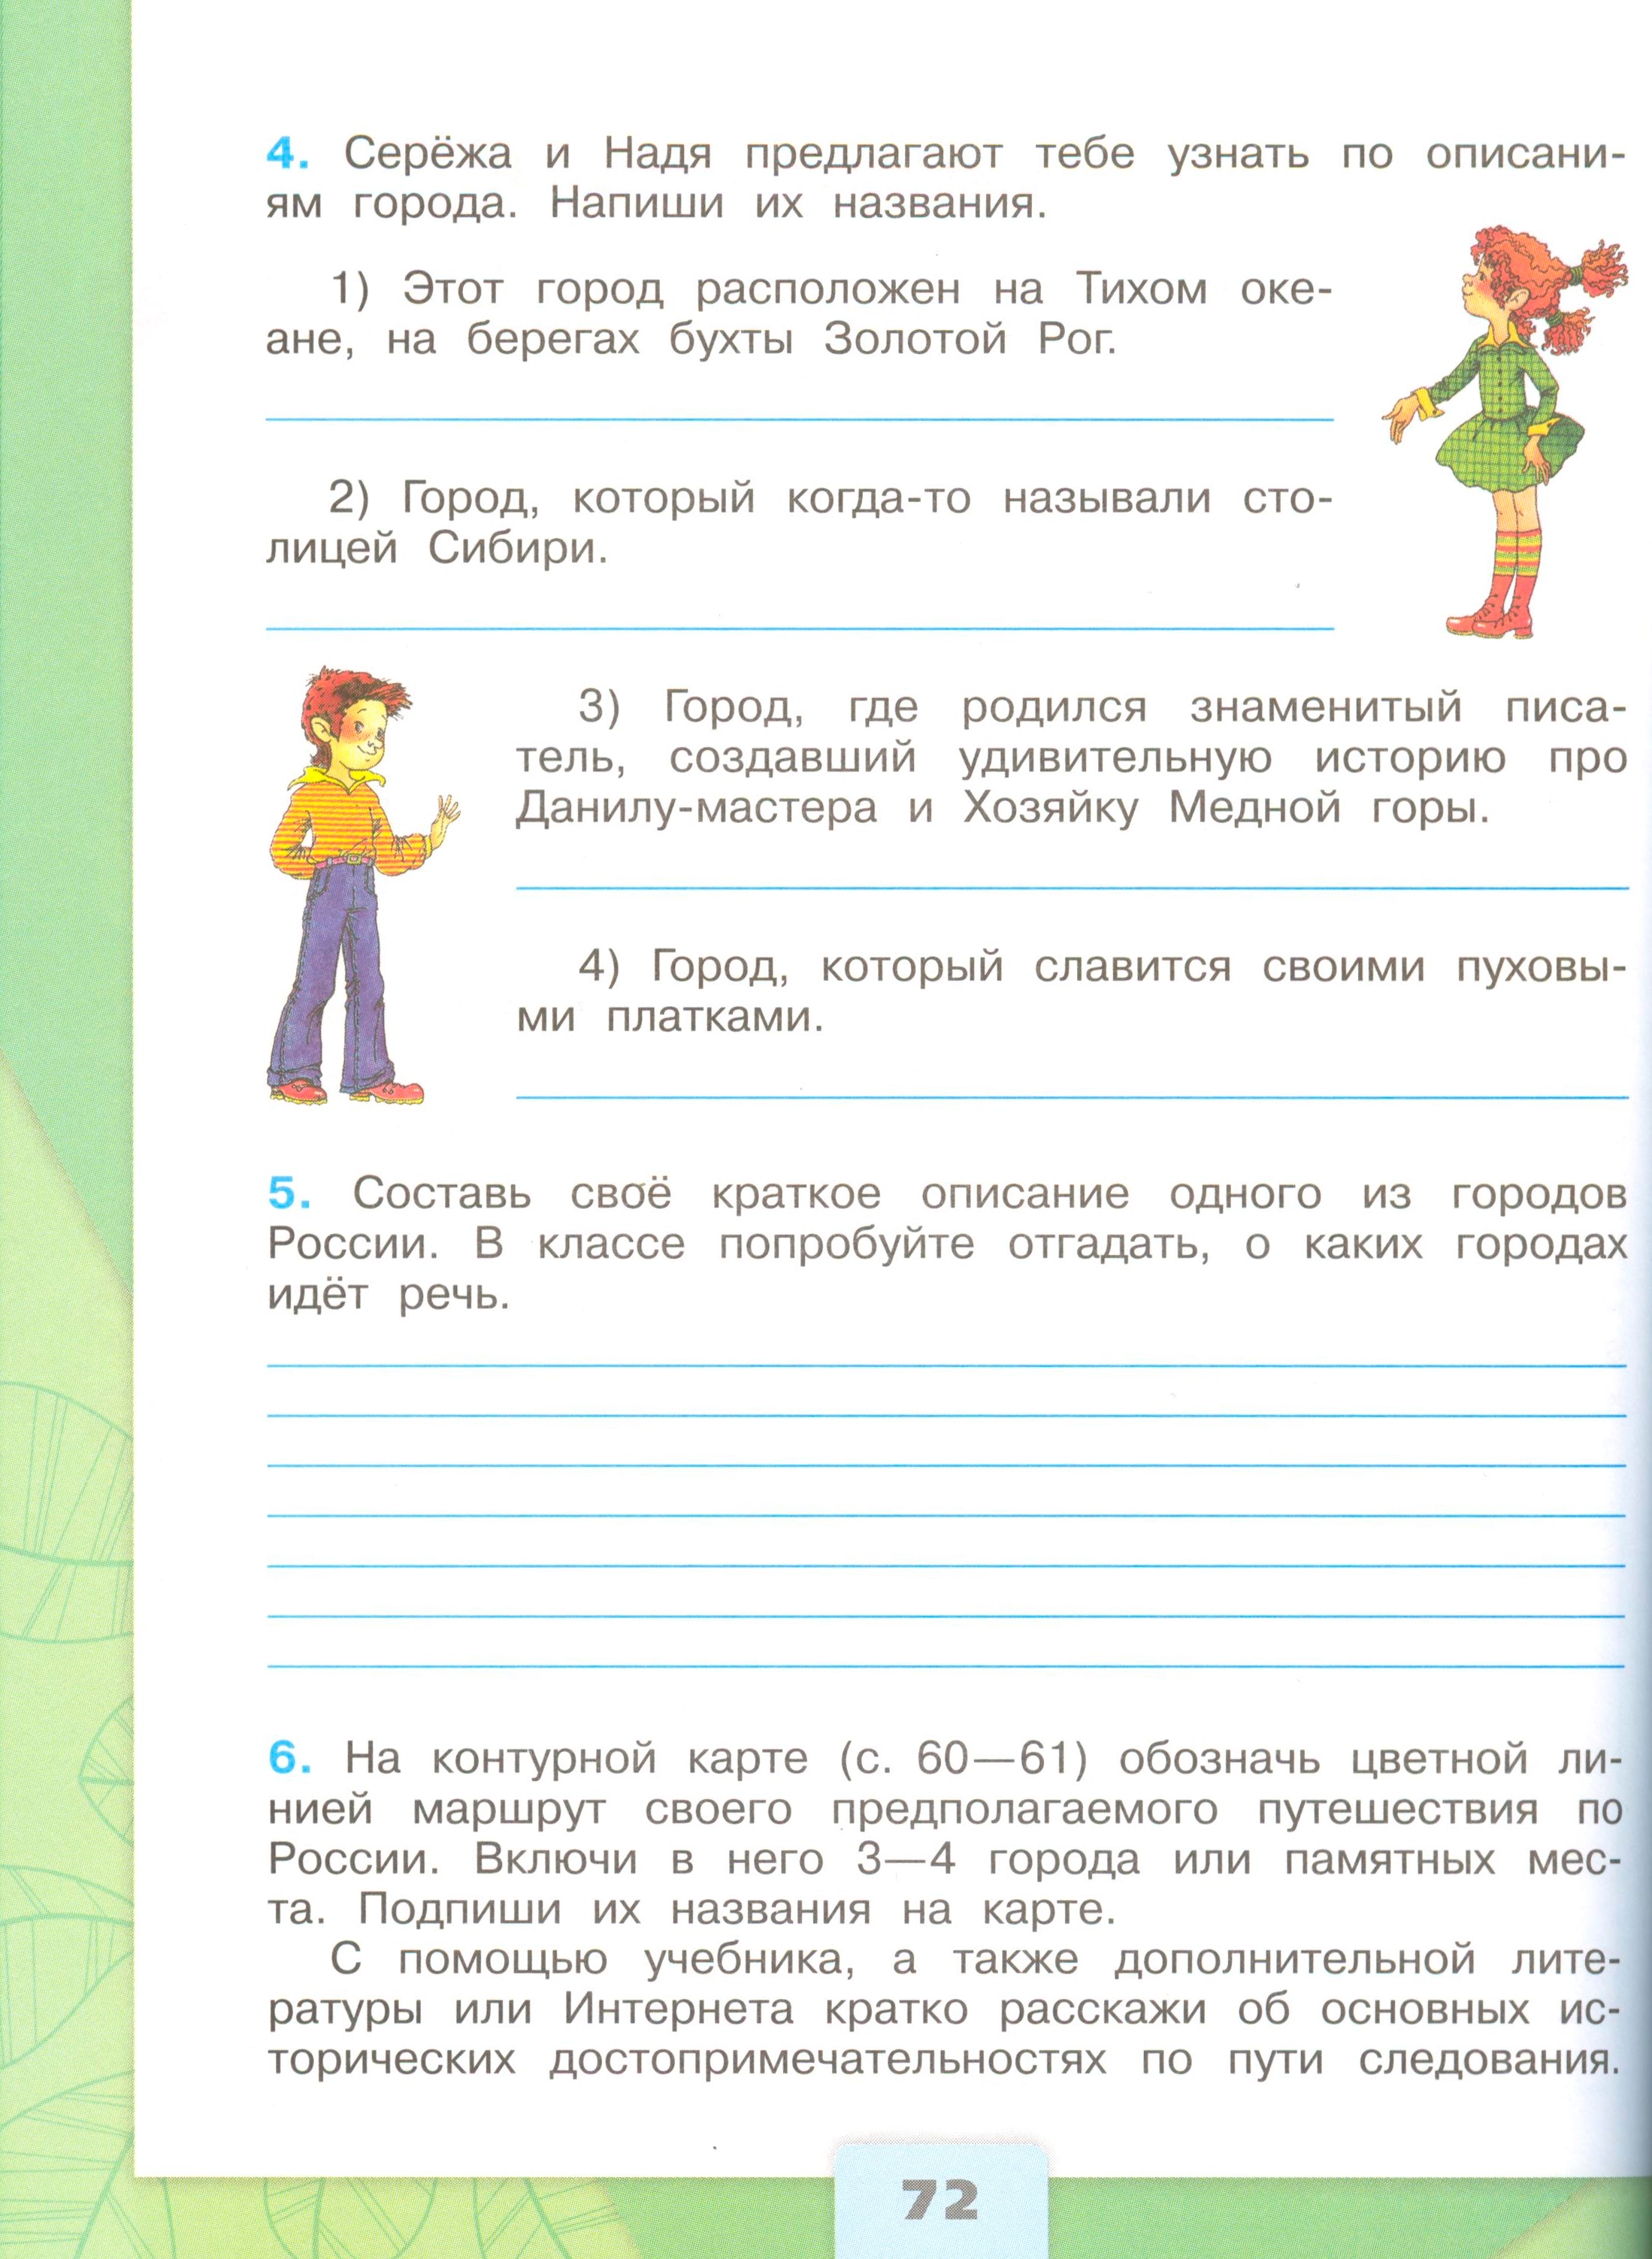 4. Серёжа и Надя предлагают тебе узнать по описани-
ям города. Напиши их названия.
1) Этот город расположен на Тихом оке-
ане, на берегах бухты Золотой Рог.
2) Город, который когда-то называли сто-
лицей Сибири.
3) Город, где родился знаменитый писа-
тель, создавший удивительную историю про
Данилу-мастера и Хозяйку Медной горы.
4) Город, который славится своими пуховы-
ми платками.
5. Составь своё краткое описание одного из городов
России. В классе попробуйте отгадать, о каких городах
идёт речь.
6. На контурной карте (с. 60—61) обозначь цветной ли-
нией маршрут своего предполагаемого путешествия по
России. Включи в него 3—4 города или памятных мес-
та. Подпиши их названия на карте.
С помощью учебника, а также дополнительной лите-
ратуры или Интернета кратко расскажи об основных ис-
торических достопримечательностях по пути следования.
72